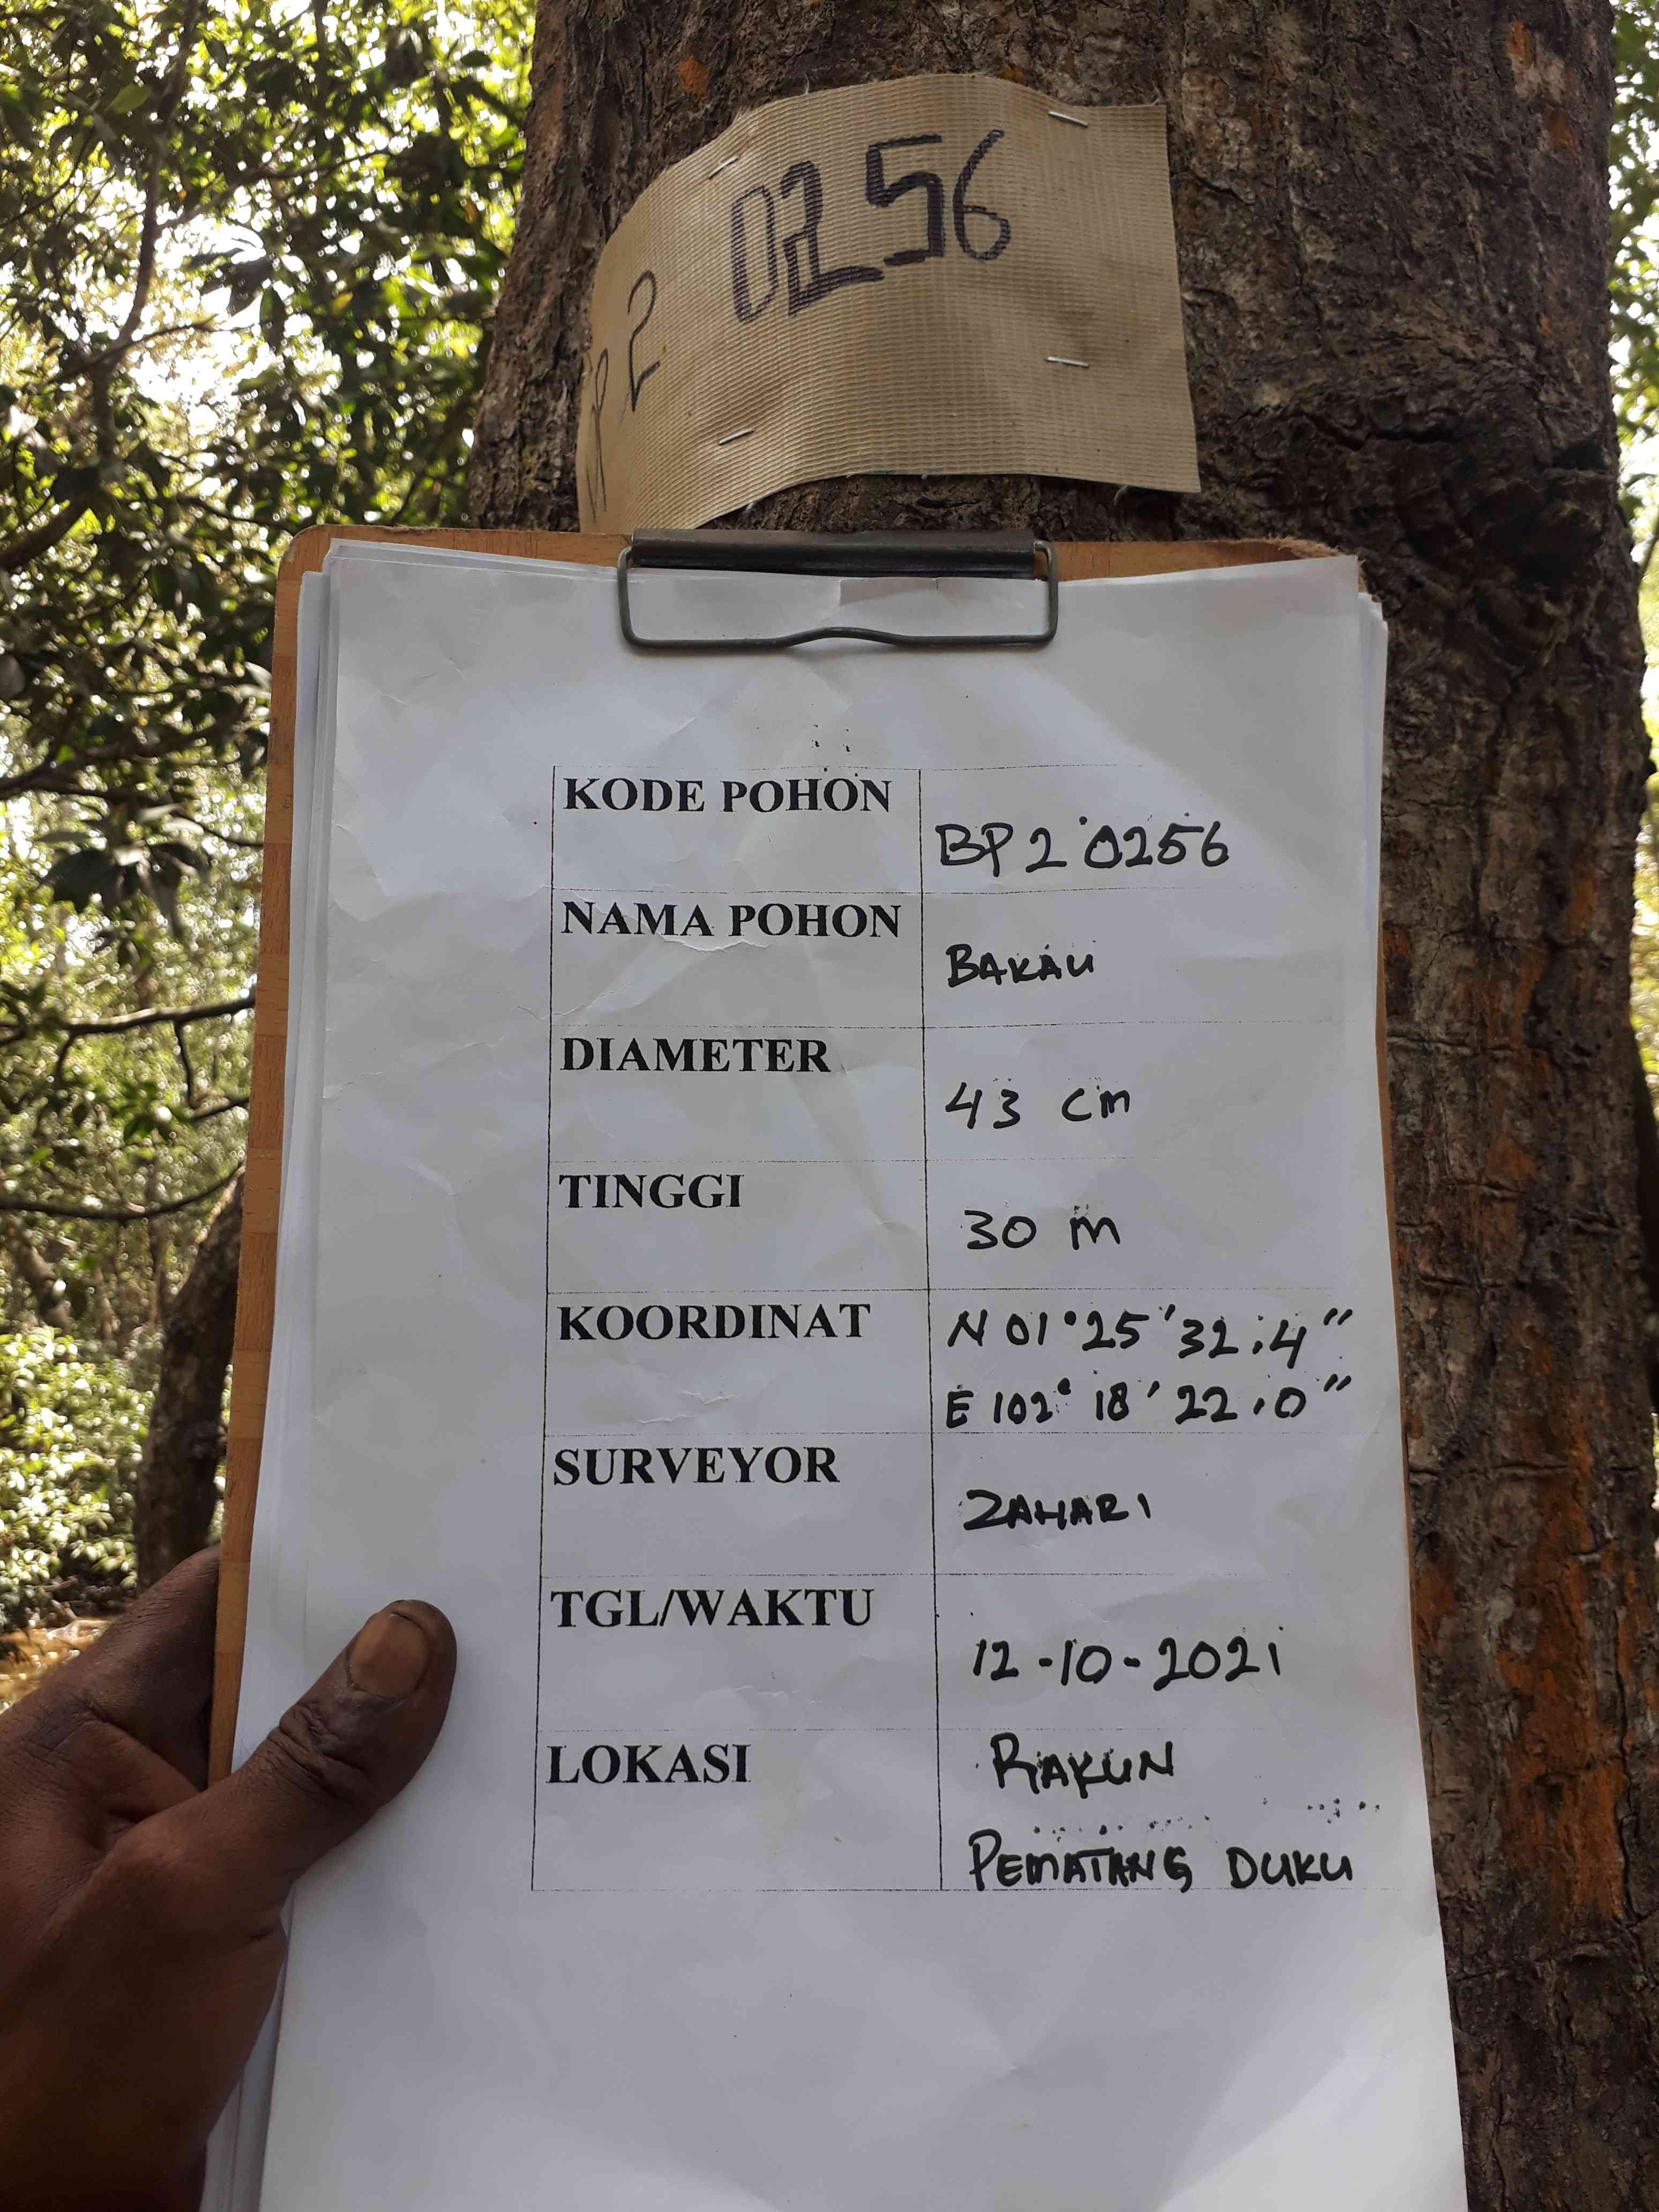 0256
P 2
KODE POHON
BP 2 0256
NAMA POHON
BAKAU
DIAMETER
43 cm
TINGGI
30 m
KOORDINAT
N 01°25'32.4"
E 102° 18' 22.0"
SURVEYOR
ZAHARI
TGL/WAKTU
12-10-2021
LOKASI
RAKUN
PEMATANG DUKU